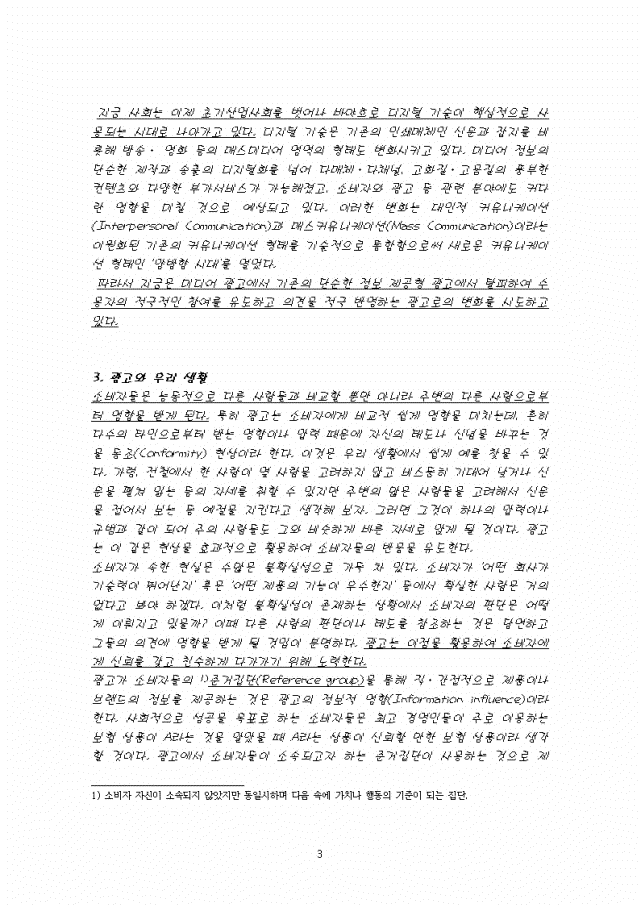 지금 사회는 이제 초기산업사회를 벗어나 바야흐로 디지털 기술이 핵심적으로 사
용되는 시대로 나아가고 있다. 디지털 기술은 기존의 인쇄매체인 신문과 잡지를 비
롯해 방송· 영화 등의 매스미디어 영역의 형태도 변화시키고 있다. 미디어 정보의
단순한 제작과 송출의 디지털화를 넘어 다매체·다채널, 고화질·고음질의 풍부한
컨텐츠와 다양한 부가서비스가 가능해졌고, 소비자와 광고 등 관련 분야에도 커다
란 영향을 미칠 것으로 예상되고 있다. 이러한 변화는 대인적 커뮤니케이션
(Interpersonal Communication)과 매스커뮤니케이션(Mass Communication)이라는
이원화된 기존의 커뮤니케이션 형태를 기술적으로 통합함으로써 새로운 커뮤니케이
션 형태인 '쌍방향 시대'를 열었다.
따라서 지금은 미디어 광고에서 기존의 단순한 정보 제공형 광고에서 탈피하여 수
용자의 적극적인 참여를 유도하고 의견을 적극 반영하는 광고로의 변화를 시도하고
있다.
3. 광고와 우리 생활
소비자들은 능동적으로 다른 사람들과 비교할 뿐만 아니라 주변의 다른 사람으로부
터 영향을 받게 된다. 특히 광고는 소비자에게 비교적 쉽게 영향을 미치는데, 흔히
다수의 타인으로부터 받는 영향이나 압력 때문에 자신의 태도나 신념을 바꾸는 것
을 동조(Conformity) 현상이라 한다. 이것은 우리 생활에서 쉽게 예를 찾을 수 있
다. 가령, 전철에서 한 사람이 옆 사람을 고려하지 않고 비스듬히 기대어 앉거나 신
문을 펼쳐 읽는 등의 자세를 취할 수 있지만 주변의 많은 사람들을 고려해서 신문
을 접어서 보는 등 예절을 지킨다고 생각해 보자. 그러면 그것이 하나의 압력이나
규범과 같이 되어 주의 사람들도 그와 비슷하게 바른 자세로 앉게 될 것이다. 광고
는 이 같은 현상을 효과적으로 활용하여 소비자들의 반응을 유도한다.
소비자가 속한 현실은 수많은 불확실성으로 가득 차 있다. 소비자가 '어떤 회사가
기술력이 뛰어난지' 혹은 '어떤 제품의 기능이 우수한지' 등에서 확실한 사람은 거의
없다고 봐야 하겠다. 이처럼 불확실성이 존재하는 상황에서 소비자의 판단은 어떻
게 이뤄지고 있을까? 이때 다른 사람의 판단이나 태도를 참조하는 것은 당연하고
그들의 의견에 영향을 받게 될 것임이 분명하다. 광고는 이점을 활용하여 소비자에
게 신뢰를 갖고 친숙하게 다가가기 위해 노력한다.
광고가 소비자들의 1)준거집단(Reference group)을 통해 직·간접적으로 제품이나
브랜드의 정보를 제공하는 것은 광고의 정보적 영향(Information influence)이라
한다. 사회적으로 성공을 목표로 하는 소비자들은 최고 경영인들이 주로 이용하는
보험 상품이 A라는 것을 알았을 때 A라는 상품이 신뢰할 만한 보험 상품이라 생각
할 것이다. 광고에서 소비자들이 소속되고자 하는 준거집단이 사용하는 것으로 제
1) 소비자 자신이 소속되지 않았지만 동일시하며 다음 속에 가치나 행동의 기준이 되는 집단.
3